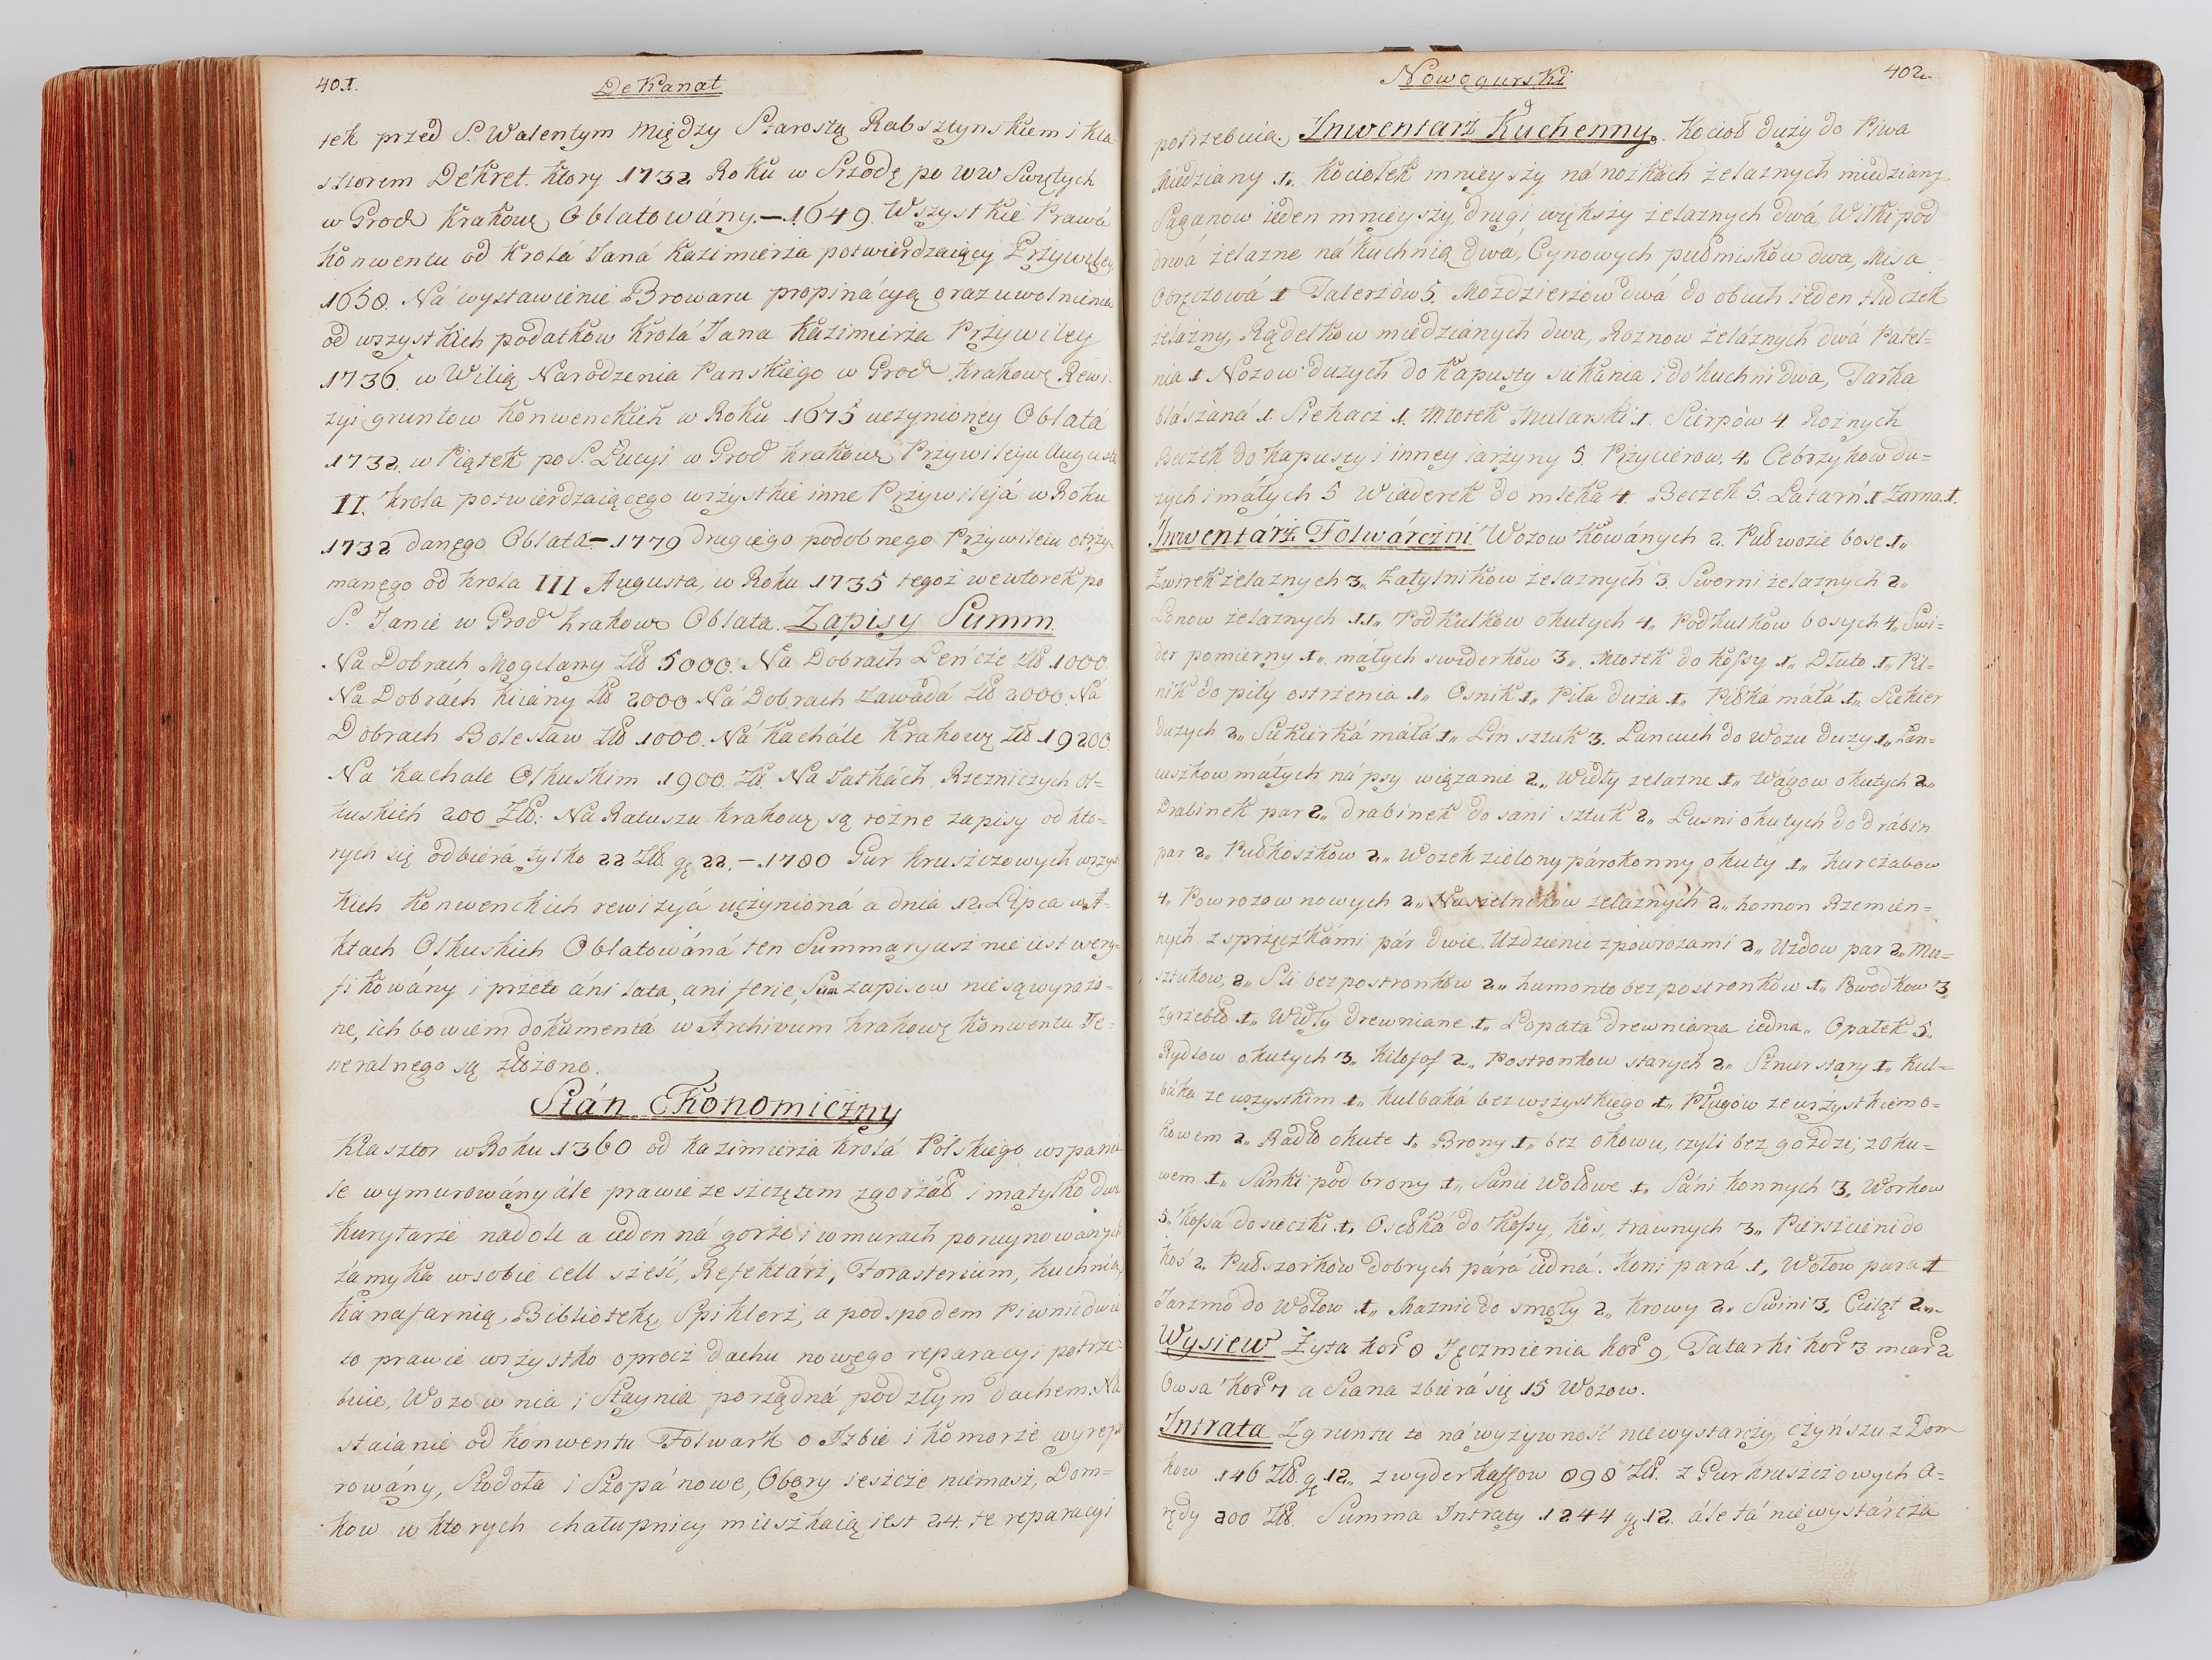 401.
Dekanat
tek przed S. Walentym między Starostą Rabsztynskiem i Kla-
sztorem Dekret. ktory 1732 Roku w Srzodę po WW Swętych
w Grod Krakow Oblatowány. — 1649. Wszystkie Prawá
Konwentu od Krolá Janá Kazimierza potwierdzaiący Przywiley
1658. Ná wystawienie Browaru propinácyą oraz uwolnienia
od wszystkich podatkow Krolá Jana Kazimierza Przywiley
1736. w Wilią Narodzenia Panskiego w Grod Krakow Rewi-
zyi gruntow Konwenckich w Roku 1675 uczynioney Oblatá
1732. w Piątek po S. Lucyi w Grod Krakow Przywileju Augusta
II. Krola potwierdzaiącego wszystkie inne Przywilejá w Roku
1732 danego Oblata — 1779 drugiego podobnego Przywileiu otrzy-
manego od Krola III Augusta, w Roku 1735 tegoż we wtorek po
S. Janie w Grod Krakow Oblata. Zapisy Summ.
Na Dobrach Mogilany Zło 5000. Na Dobrach Leńcze Zło 1000.
Na Dobrách Kiciány Zło 2000 Ná Dobrach Zawadá Zło 2000. Ná
Dobrach Bolesław Zło 1000. Ná Kachále Krakow Zło 19200.
Na Kachale Olkuskim 1900. Zło. Na Jatkách Rzezniczych Ol-
kuskich 200 Zło: Na Ratuszu Krakow są rożne zapisy od kto-
rych się odbiera tylko 22 Zło. g 22. — 1780 Gur kruszcowych wszys-
kich Konwenckich rewizyá uczynioná a dnia 12. Lipca w A-
ktach Olkuskich Oblatowáná ten Summaryusz nie iest wery-
fikowány i przeto áni lata, ani ferie, Sum zapisow nie są wyrazo-
ne, ich bowiem dokumentá w Archivum Krakow Konwentu Je-
neralnego są złożone.
Stán Ekonomiczny
Klasztor w Roku 1360 od Kazimierza Krolá Polskiego wspania-
le wymurowány ále prawie ze szczętem zgorzáł i ma tylko dwa
kurytarze na dole a ieden ná gorze i w murach porujnowanych
zamyka w sobie cell sześć, Refektárż, Forasterium, Kuchnią,
Kanafarnią, Bibliotekę, Spiklerz, a pod spodem Piwnic dwie
to prawie wszystko oprocz dachu nowego reparacyi potrze-
buie, Wozownia i Staynia porządná pod złym dachem. Na
staianie od Konwentu Folwark o Izbie i Komorze wyrepe-
rowány, Stodoła i Szopá nowe, Obory ieszcze niemasz, Dom-
kow w ktorych chałupnicy mieszkaią iest 24. te reparacyi
Nowogurski
402.
potrzebuią. Inwentarz Kuchenny. Kocioł duży do Piwa
Miedziany 1. Kociołek mnieyszy ná nożkách żelaznych miedziany
Saganow ieden mnieyszy drugi większy żelaznych dwá, Wilki pod
drwá żelazne ná kuchnią dwá, Cynowych pułmiskow dwa, Misa
Obręczowá 1 Talerzów 5. Mozdzierzow dwá do obuch ieden tłuczek
żelazny, Rądelkow miedzianych dwa, Rożnow żeláznych dwá Patel-
nia 1 Nozow dużych do kapusty siekania i do kuchni dwa, Tarka
blászáná 1 Siekacz 1. Młotek Mularski 1. Sierpów 4 Roznych
Beczek do kapusty i inney iarzyny 5. Przycierow. 4. Cebrzykow du-
zych i máłych 5 Wiaderek do mleka 4. Beczek 5. Latarń 1 Zarna 1.
Inwentárz Folwárczni Wozow kowánych 2. Puł wozie bose 1.
Zwirek żelaznych 3. Zatylnikow żelaznych 3. Sworni żelaznych 2.
Lonow żelaznych 11. Podkulkow okutych 4. Podkulkow bosych 4. Swi-
der pomierny 1. máłych swiderkow 3. Młotek do kossy 1. Dłuto 1. Pil-
nik do piły ostrzenia 1. Osnik 1. Piła duża 1. Piłká máłá 1. Siekier
dużych 2. Siekierká máłá 1. Lin sztuk 3. Lancuch do Wozu duzy 1. Lan-
cuszkow máłych ná psy wiązanie 2. Widły zelazne 1. Wágow okutych 2.
Drabinek par 2. drabinek do sáni sztuk 2. Lusni okutych do drábin
par 2. Pułkoszkow 2. Wozek zielony párokonny okuty 1. Kurczabow
4. Powrozow nowych 2. Naszelnikow żelaznych 2. Homon Rzemien-
nych z sprzączkámi pár dwie. Uzdzienic z powrozami 2. Uzdow par 2. Mu-
sztukow, 2. Sli bez postronkow 2. humonto bez postronkow 1. Powodkow 3.
Zgrzebło 1. Widły drewniane 1. Łopata drewniana iedna. Opałek 5.
Rydlow okutych 3. Kilofof 2. Postronkow starych 2. Sznur stary 1. Kul-
báka ze wszystkim 1. Kulbaká bez wszystkiego 1. Pługow ze wszystkiem o-
kowem 2. Radło okute 1. Brony 1. bez okowu, czyli bez goździ; z oku-
wem 1. Sanki pod brony 1. Sanie Wołowe 1. Sáni konnych 3. Workow
5. Kossá do sieczki 1. Osełká do Kossy, kos, trawnych 3. Pierszcieni do
kos 2. Pułszorkow dobrych párá iedná. Koni pará 1. Wołow para 1
Jarzmo do Wołow 1. Maznic do smoły 2. Krowy 2. Swini 3. Cieląt 2.
Wysiew Żyta kor 8 Jęczmienia kor 9, Tatarki kor 3 miar 2
Owsa kor 7 a Siana zbierá się 15 Wozow.
Intrata Z gruntu to ná wyżywność niewystarczy, czyńszu z Dom
kow 146 Zło. g 12. z wyderkassow 898 Zło. z Gur kruszcowych A-
rędy 200 Zło. Summa Intraty 1244 g 12. ále tá niewystárcza